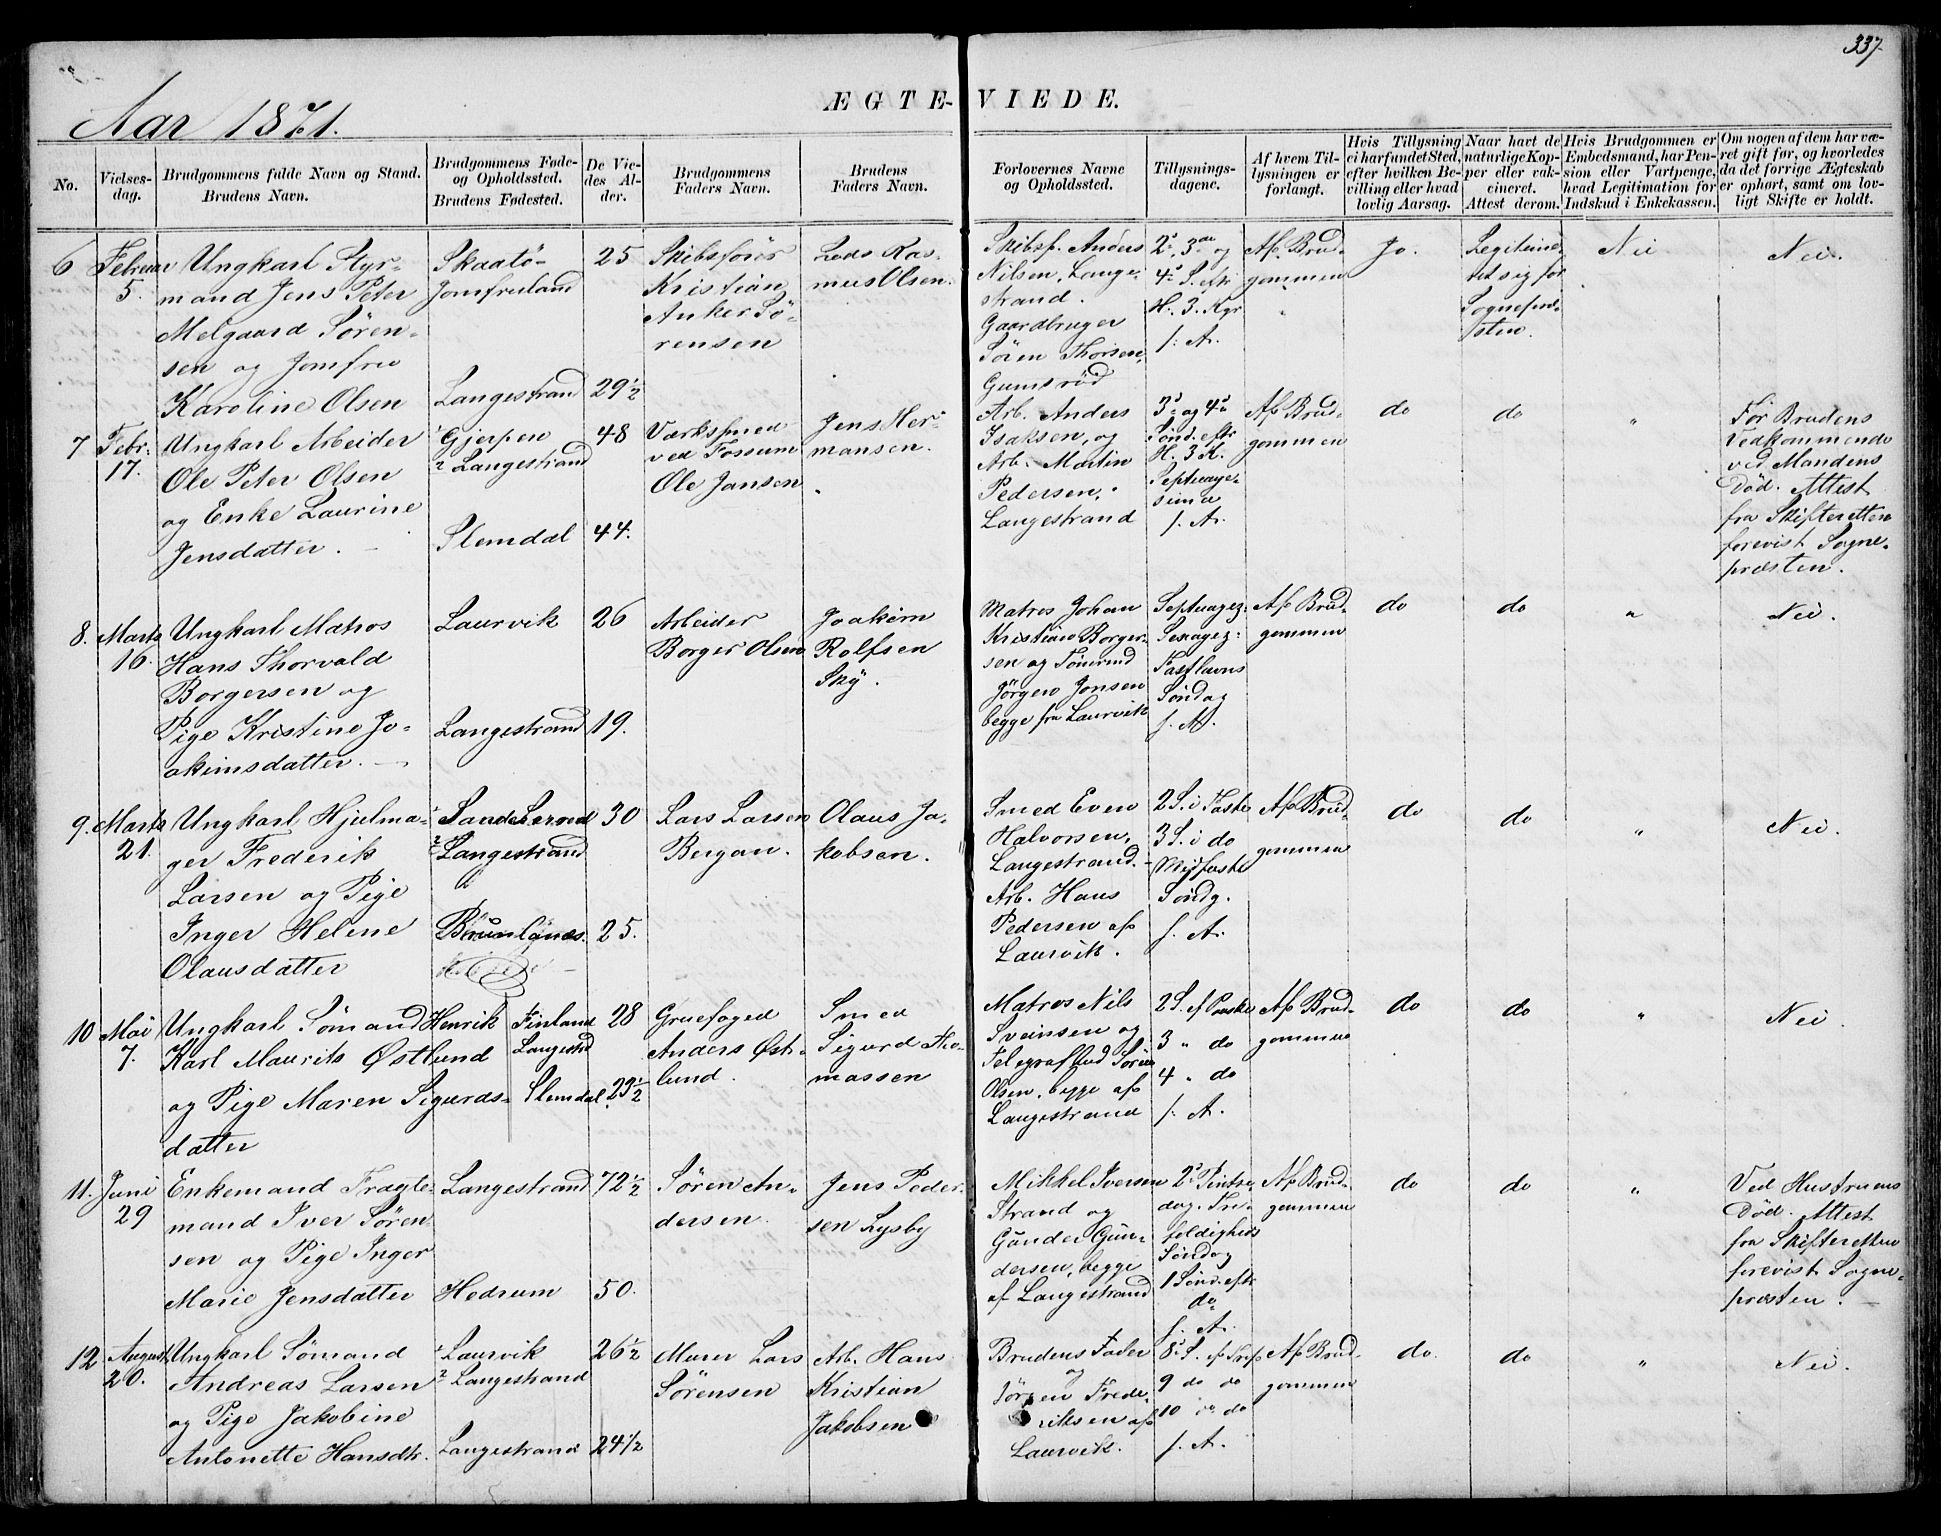 337
Aar 1871.
ÆGTE-VIEDE.
No.
Vielses-
dag.
Brudgommens fulde Navn og Stand.
Brudens Navn.
Brudgommens Føde-
og Opholdssted.
Brudens Fødested.
De Vie-
des Al-
der.
Brudgommens
Faders Navn.
Brudens
Faders Navn.
Forlovernes Navne
og Opholdssted.
Tillysnings-
dagene.
Af hvem Til-
lysningen er
forlangt.
Hvis Tillysning
ei har fundet Sted,
efter hvilken Be-
villing eller hvad
lovlig Aarsag.
Naar havt de
naturlige Kop-
per eller vak-
cineret.
Attest derom.
Hvis Brudgommen er
Embedsmand, har Pen-
sion eller Vartpenge,
hvad Legitimation for
Indskud i Enkekassen.
Om nogen af dem har væ-
ret gift før, og hvorledes
da det forrige Ægteskab
er ophørt, samt om lov-
ligt Skifte er holdt.
6
Februar
5.
Ungkarl Styr-
mand Jens Peter
Melgaard Søren-
sen og Jomfru
Karoline Olsen
Skaatö-
Jomfruland
Langestrand
25
29 1/2
Skibsförer
Kristian
Anker Sö-
rensen
Lods Ras-
mus Olsen.
Skibsf. Anders
Nilsen, Lange-
strand.
Gaardbruger
Sören Thorsen,
Gumsröd
2', 3de og
4' S. eftr
H. 3. Kgr
f. A.
Af Brud-
gommen
Jo.
Legitime-
ret sig for
Sognepræ-
sten.
Nei
Nei.
7
Febr.
17.
Ungkarl Arbeider
Ole Peter Olsen
og Enke Laurine
Jensdatter.
1 Gjerpen
2 Langestrand
Slemdal
48
44.
Værksmed
ved Fossum
Ole Jansen
Jens Her-
mansen.
Arb. Anders
Isaksen, og
Arb. Martin
Pedersen,
Langestrand
3' og 4'
Sönd. eftr
H. 3 K.
Septuage-
sima
f. A.
Af Brud-
gommen
do
do
"
För Brudens
Vedkommende
ved Mandens
Död. Attest
fra Skifteretten
forevist Sogne-
præsten.
8.
Marts
16.
Ungkarl Matros
Hans Thorvald
Borgersen og
Pige Kristine Jo-
akimsdatter.
Laurvik
Langestrand
26
19.
Arbeider
Borger Olsen
Joakim
Rolfsen
Sky.
Matros Johan
Kristian Borger-
sen og Tömmd
Jörgen Jonsen
begge fra Laurvik
Septuagez.
Sexagez:
Fastlavns
Söndag
f. A.
Af Brud-
gommen
do
do
"
Nei.
9.
Marts
21.
Ungkarl Hjulma-
ger Frederik
Larsen og Pige
Inger Helene
Olausdatter
1 Sandeherred
2 Langestrand
Brunlanæs.
30
25.
Lars Larsen
Bergan.
Olaus Ja-
kobsen.
Smed Even
Halvorsen,
Langestrand.
Arb. Hans
Pedersen af
Laurvik.
2 S. i Faste
3 S. i do
Midfaste
Söndg.
f. A.
Af Brud-
gommen
do
do
"
Nei.
10
Mai
7.
Ungkarl Sömand Henrik
Karl Maurits Østlund
og Pige Maren Sigurds-
datter
Finland
Langestrd
Slemdal
28
29 1/2
Gruefoged
Anders Øst-
lund.
Smed
Sigurd Tho-
massen
Matros Nils
Sveinsen og
Telegrafbud Sören
Olsen, begge af
Langestrand
2 S. ef Paaske
3 " do
4 " do
f. A.
Af Brud-
gommen
do
do
"
Nei.
11.
Juni
29
Enkemand Fragte-
mand Iver Sören-
sen og Pige Inger
Marie Jensdatter
Langestrand
Hedrum
72 1/2
50.
Sören An-
dersen.
Jens Peder-
sen Lysby
Mikkel Iversen
Strand og
Gunder Gun-
dersen, begge
af Langestrand
2' Pintse-
dag. Tre-
foldigheds
Söndag
1 Sönd. eftr
do
f. A.
Af Brud-
gommen
do
do
"
Ved Hustruens
Död. Attest
fra Skifteretten
forevist Sogne-
præsten.
12
August
20.
Ungkarl Sömand
Andreas Larsen
og Pige Jakobine
Antonette Hansdtr.
1 Laurvik
2 Langestrand
Langestrand
26 1/2
24 1/2
Murer Lars
Sörensen
Arb. Hans
Kristian
Jakobsen
Brudens Fader
og
Jörgen Frede-
riksen af
Laurvik.
8' S. ef Tref
9 do do
10 " do
f. A.
Af Brud-
gommen
do.
do
"
Nei.